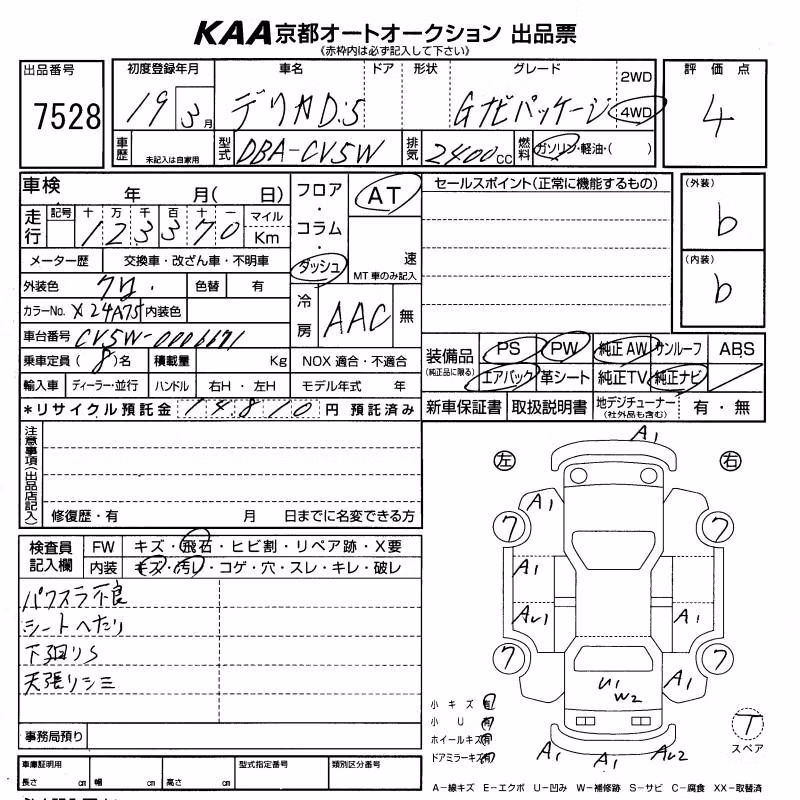 KAA京都オートオークション 出品票
(赤枠内は必ず記入して下さい)
出品番号 初度登録年月 車名 ドア 形状 グレード 評価点
2WD
7528 19 3月 デリカD:5 Gナビパッケージ 4WD 4
車歴 未記入は自家用 型式 DBA-CV5W 排気 2400cc 燃料 ガソリン・軽油・( )
車検 年 月( 日) フロア・コラム・ダッシュ AT セールスポイント(正常に機能するもの) (外装)
走行 記号 十 万 千 百 十 一 マイル b
1 2 3 3 7 0 Km 速
メーター歴 交換車・改ざん車・不明車 MT車のみ記入 (内装)
外装色 クロ 色替 有 冷房 AAC 無 b
カラーNo. X24A75 内装色
車台番号 CV5W-0006671
乗車定員 (8)名 積載量 Kg NOX 適合・不適合
輸入車 ディーラー・並行 ハンドル 右H・左H モデル年式 年
装備品 PS PW 純正AW サンルーフ ABS
(純正品に限る) エアバック 革シート 純正TV 純正ナビ
＊リサイクル預託金 14810円 預託済み
新車保証書 取扱説明書 地デジチューナー 有・無
(社外品も含む)
注意事項(出品店記入)
修復歴・有 月 日までに名変できる方
左 右
A1
A1
7 7
A1
AU1 A1
7 7
A1
U1
W2
A1 A1 AU2
検査員記入欄 FW キズ・飛石・ヒビ割・リペア跡・X要
内装 キズ・汚れ・コゲ・穴・スレ・キレ・破レ
パワスラ不良
シートへたり
下廻りS
天張りシミ
小キズ 有
小U 有
ホイールキズ 有
ドアミラーキズ 有
T
スペア
事務局預り
車庫証明用 型式指定番号 類別区分番号
長さ cm 幅 cm 高さ cm
A−線キズ E−エクボ U−凹み W−補修跡 S−サビ C−腐食 XX−取替済